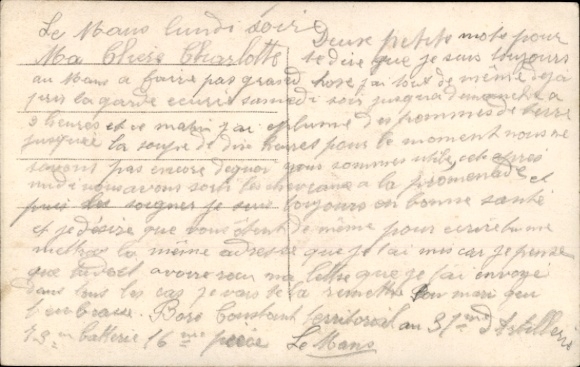 Le Mans lundi soir
Ma Chère Charlotte
Deux petits mots pour
te dire que je suis toujours
au Mans a faire pas grand chose j'ai tout de même déjà
pris la garde ecurie samedi soir jusqua dimanche a
3 heures et ce matin j'ai éplumé des pommes de terre
jusqua la soupe de dix heures pour le moment nous ne
savons pas encore dequoi nous sommes utile cet après
midi nous avons sorti les cheveaux a la promenade et
puis les soigner je suis toujours en bonne santé
et je désire que vous de même pour écrire tu me
mettra la même adresse que je t'ai mis car je pense
que tu doit avoir reçu ma lettre que je t'ai envoyé
dans tout les cas je vais te la remettre ton mari qui
t'embrasse. Constant territorial au 31me d'Artillerie
73me batterie 16me pièce Le Mans